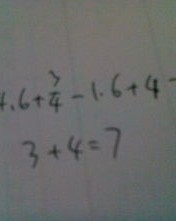 .6+3/4-1.6+4-
3+4=7